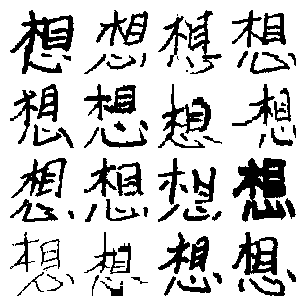 想想想想
想想想想
想想想想
想想想想